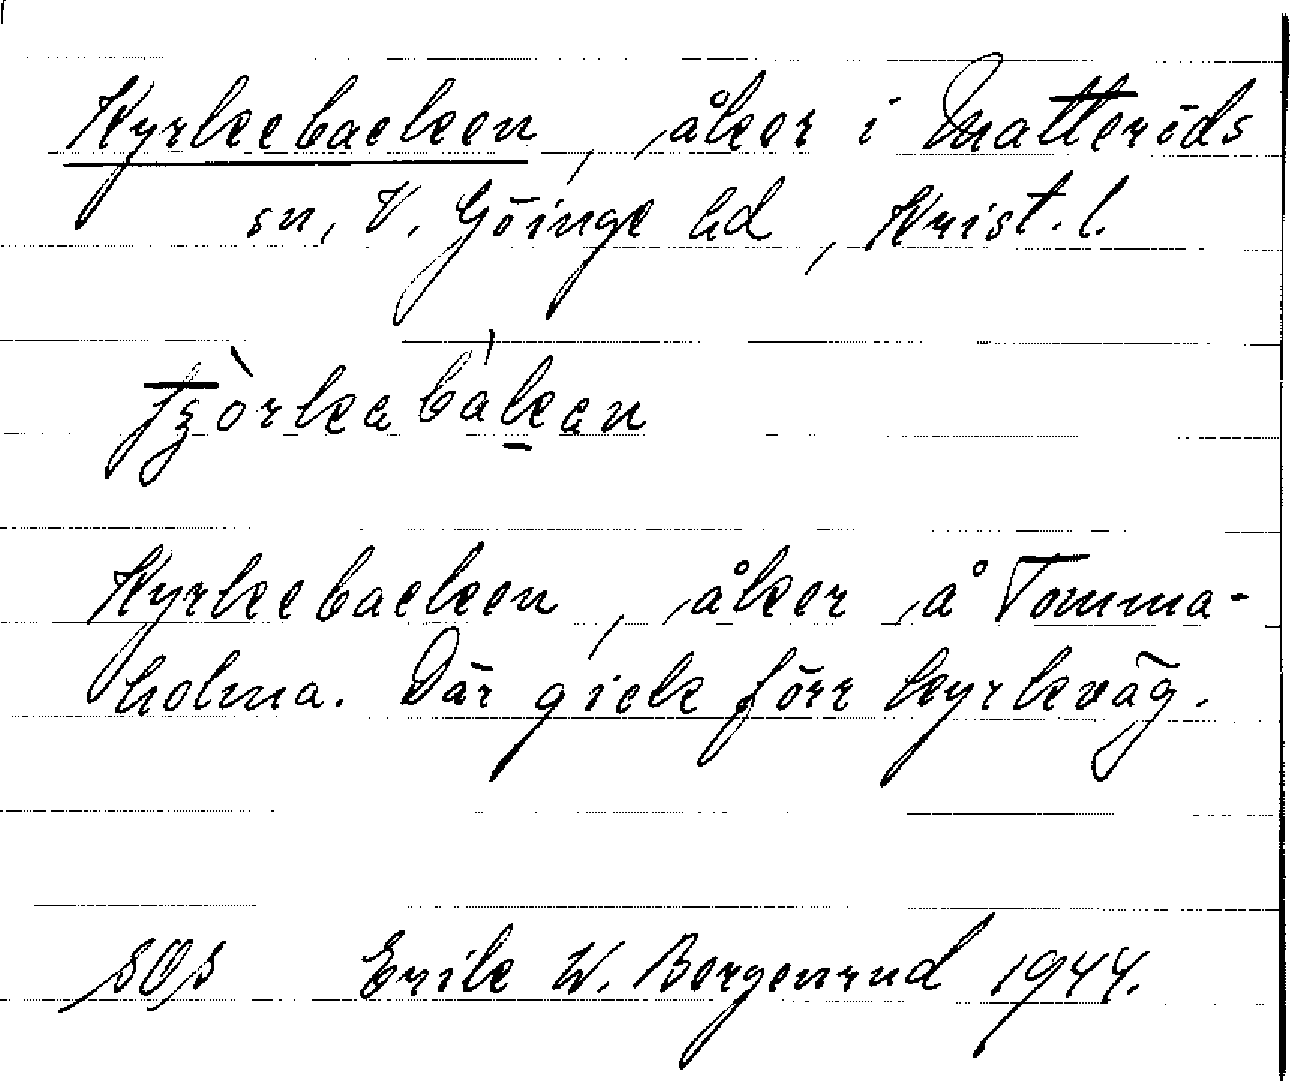 Kyrkebacken, åker i Matteröds
sn, V. Göinge hd, Krist. l.
Kyrkebacken, åker å Tomma-
holma. Där gick förr kyrkväg.
SOS Erik W. Bergenrud 1944.